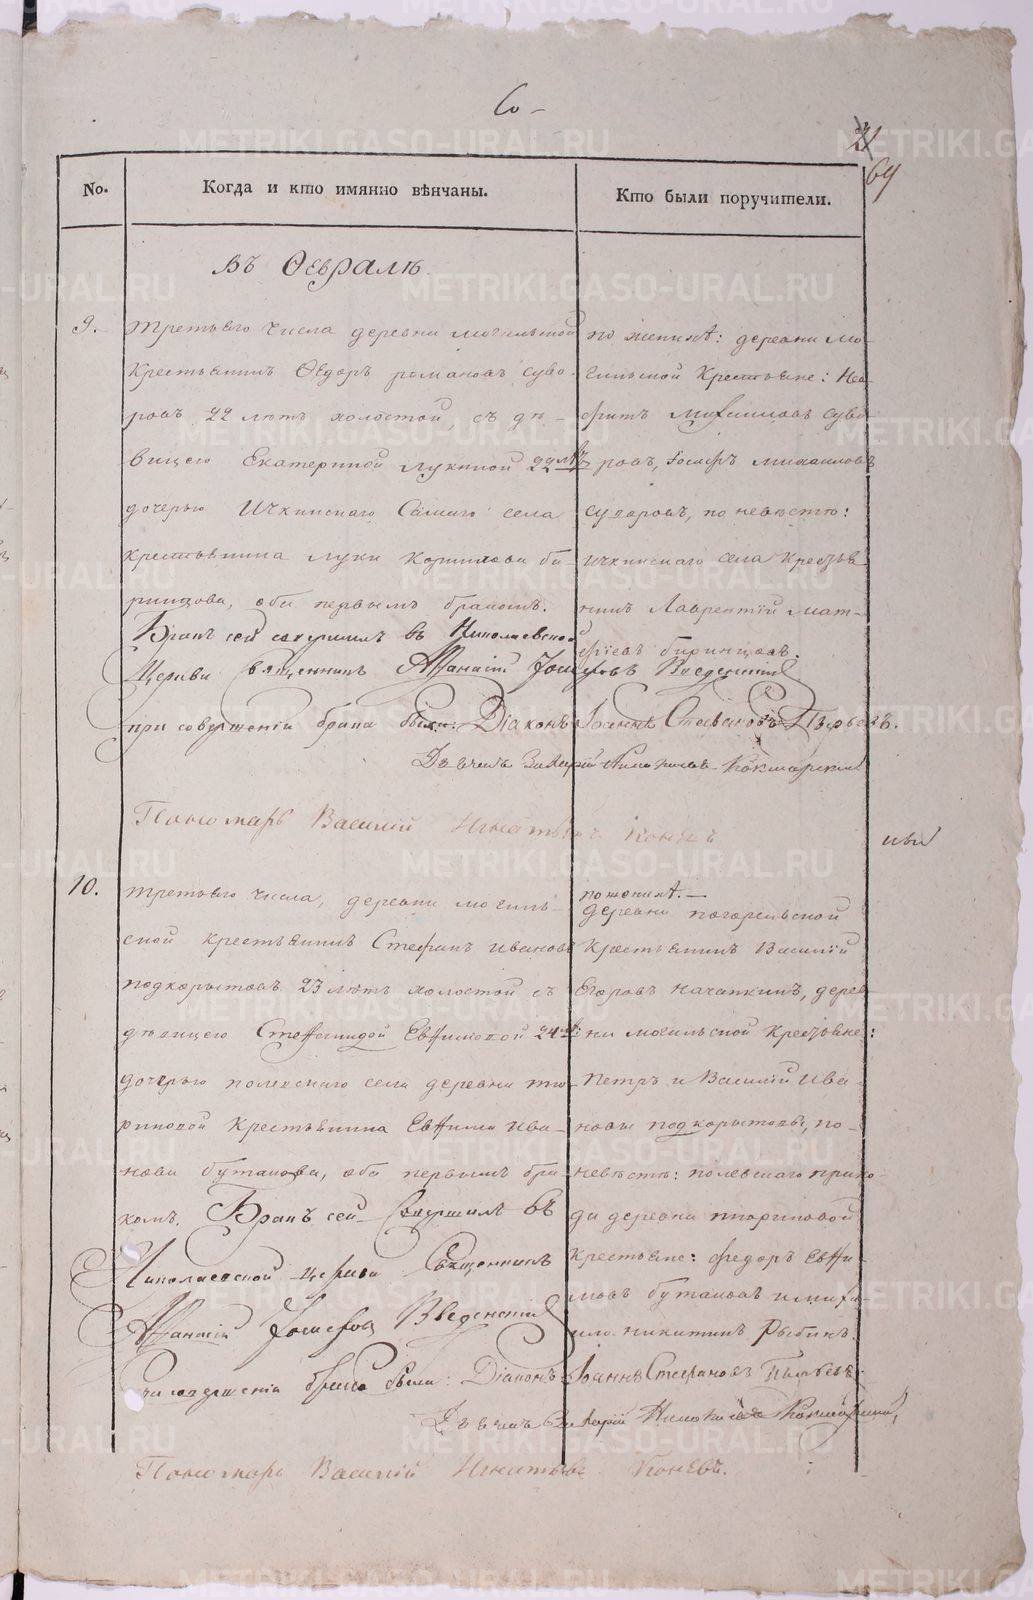 Со-
21
69
No.
Когда и кто имянно вѣнчаны.
Кто были поручители.
въ Ѳевралѣ.
9.
третьяго числа деревни могильской
крестьянинъ Ѳедоръ романовъ суво-
ровъ 22 лѣтъ холостой, съ дѣ-
вицею Екатериной Лукиной 22 лѣтъ
дочерью Ичкинскаго Самаго села
крестьянина луки Корнилова би-
ринцова, оба первымъ бракомъ.
Бракъ сей совершилъ въ Николаевской
Церкви Священникъ Аѳанасій Іосифовъ Введенскій
при совершеніи брака были: Діаконъ Іоаннъ Стефановъ Первовъ.
Дьячекъ Захарій Николаевъ Кокшарскій
Пономарь Василій Игнатьевъ Коневъ
по женихѣ: деревни мо-
гильской Крестьяне:
Михайловъ суво-
ровъ, Іосифъ михайловъ
суворовъ, по невѣстѣ:
ичкинскаго села крестья-
нинъ Лаврентій мат-
фѣевъ биринцовъ.
10.
третьяго числа, деревни могиль-
ской крестьянинъ Стефанъ ивановъ
подкорытовъ 23 лѣтъ холостой съ
дѣвицею Евфимовой 24 лѣ:
дочерью полевскаго села деревни тю-
риковой крестьянина Евфима ива-
нова бутакова, оба первымъ бра-
комъ. Бракъ сей Совершилъ въ
Николаевской церкви Священникъ
Аѳанасій Іосифовъ Введенскій
при совершеніи брака были: Діаконъ Іоаннъ Стефановъ Первовъ.
Дьячекъ Захарій Николаевъ Кокшарскій,
Пономарь Василій Игнатьевъ Коневъ.
по женихѣ.—
деревни погорѣльской
Крестьянинъ Василій
Егоровъ начапкинъ, дерев
ни могильской крестьяне:
Петръ и Василій ива-
новы подкорытовы, по-
невѣстѣ: полевскаго прихо-
да деревни
крестьяне: федоръ Евфи-
мовъ бутаковъ и миха
ило никитинъ Рыбинъ.
METRIKI.GASO-URAL.RU